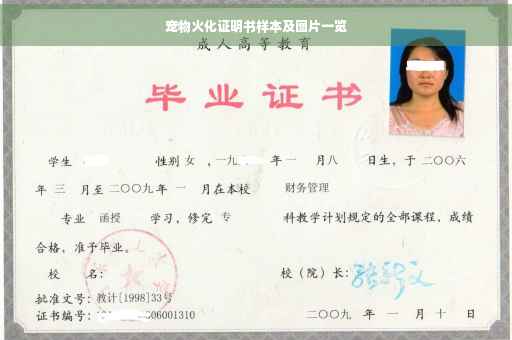 宠物火化证明书样本及图片一览
成人高等教育
毕业证书
学生 性别 女 ，一九 年 一 月 八 日生，于 二〇〇六
年 三 月至 二〇〇九 年 一 月在本校 财务管理
专业 函授 学习，修完 专 科教学计划规定的全部课程，成绩
合格，准予毕业。
校 名： 校（院）长：
批准文号：教计[1998]33号
证书编号： 06001310 二〇〇九 年 一 月 十 日